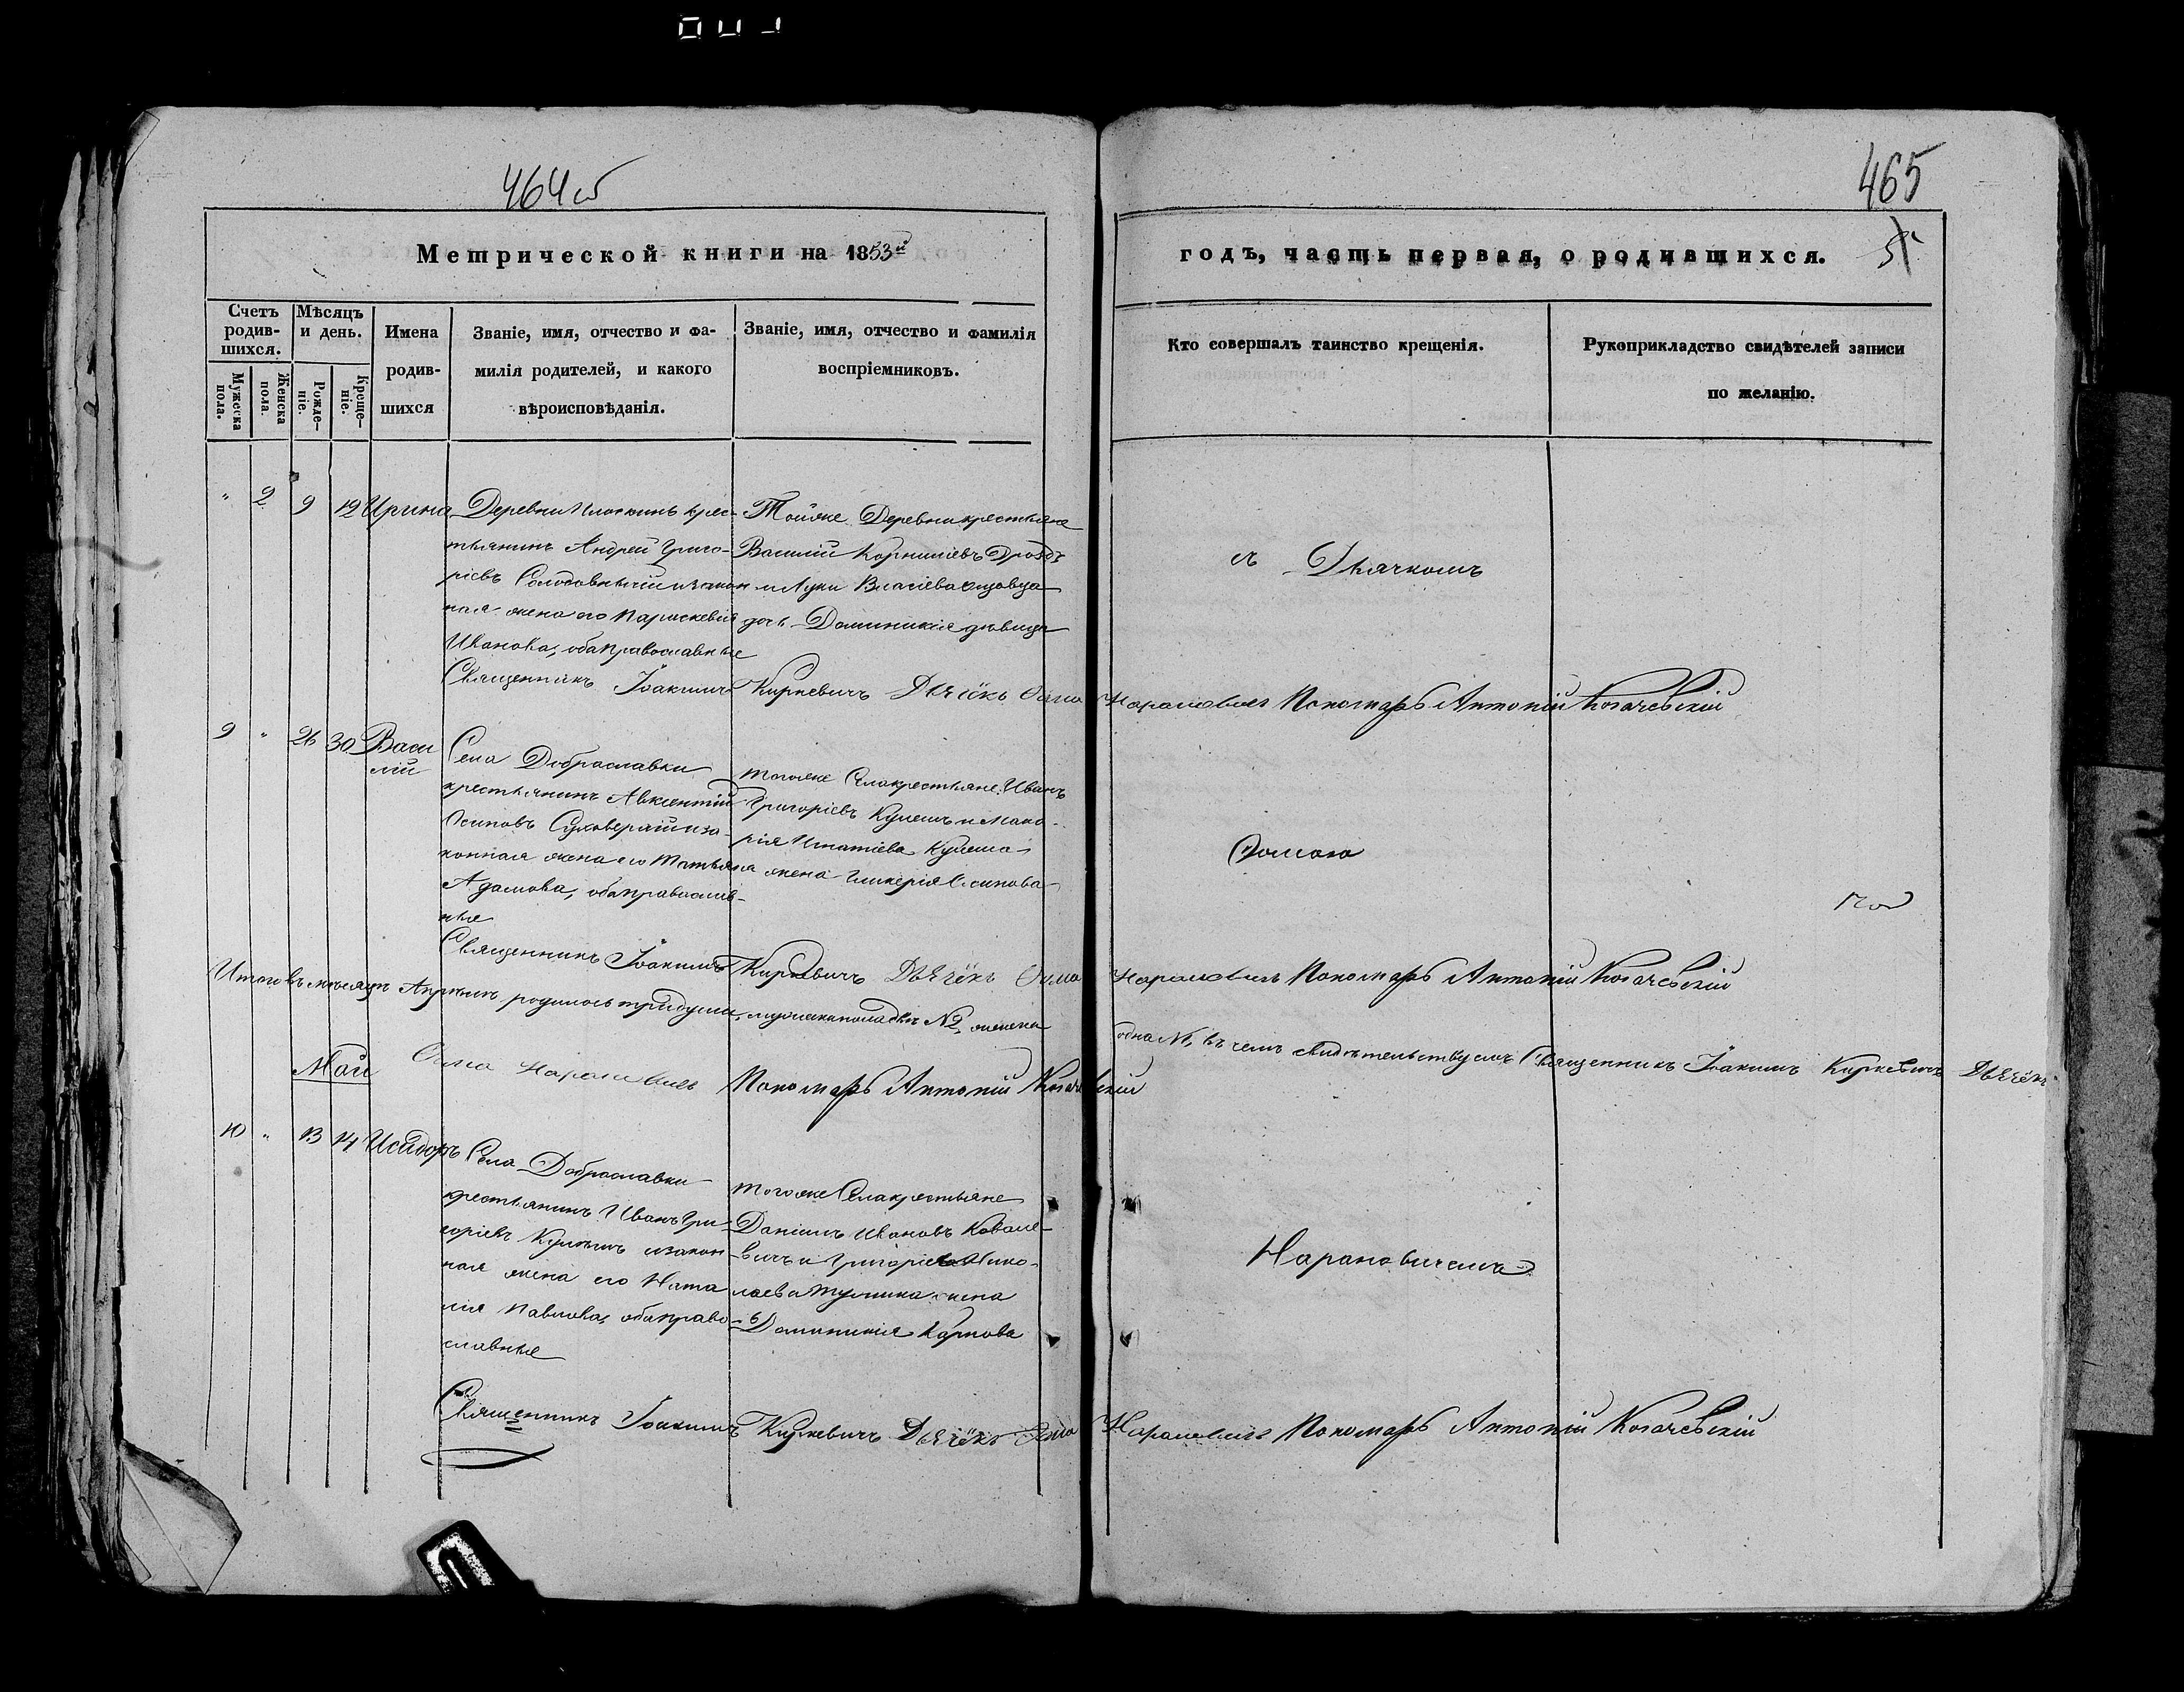 464 об
465
Метрической книги на 1853й
годъ, часть первая, о родившихся.
5
Счетъ родив-шихся.
Мѣсяцъ и день.
Имена родив-шихся
Званіе, имя, отчество и фа-
милія родителей, и какого
вѣроисповѣданія.
Званіе, имя, отчество и фамилія
воспріемниковъ.
Мужеска пола.
Женска пола.
Рожде-ніе.
Креще-ніе.
Кто совершалъ таинство крещенія.
Рукоприкладство свидѣтелей записи
по желанію.
" 2 9 12 Ирина
Деревни крес-
тьянинъ Андрей Григо-
рієвъ и закон
ная жена его Параскевія
Иванова, оба православные
Тойже Деревни крестьяне
Василій Корниліевъ Дроздъ
и Луки Власіева
дочь Доминикія дѣвица
съ Дьячкомъ
Священникъ Іоакимъ Киркевичъ Дьячёкъ Ѳома Нарановичъ Пономарь Антоній Когачевскій
9 " 26 30 Васи
лій
Села Доброславки
крестьянинъ Авксентій
Осиповъ и за-
конная жена его Татьяна
Адамова, оба православ-
ные
тогоже Села крестьяне Иванъ
Григоріевъ Кулешъ и Мака-
рія Игнатіева Кулеша
жена Гликерія Осипова
Ѳомою
Священникъ Іоакимъ Киркевичъ Дьячёкъ Ѳома Нарановичъ Пономарь Антоній Когачевскій
Итого въ мѣсяцѣ Апрѣлѣ родилось три души, мужеска пола двѣ №2, женска
одна №1, въ чемъ свидѣтельствуемъ Священникъ Іоакимъ Киркевичъ Дьячёкъ
Ѳома Нарановичъ Пономарь Антоній Когачевскій
Май
10 " 13 14 Исидоръ
Села Доброславки
крестьянинъ Иванъ Гри-
горіевъ Кулешъ и закон-
ная жена его Ната
лія Павлова, оба право-
славные
тогоже Села крестьяне
Даніилъ Ивановъ Ковале-
вичъ и Григорія Нико-
лаева жена
Доминикія Карпова
Нарановичемъ
Священникъ Іоакимъ Киркевичъ Дьячёкъ Ѳома Нарановичъ Пономарь Антоній Когачевскій